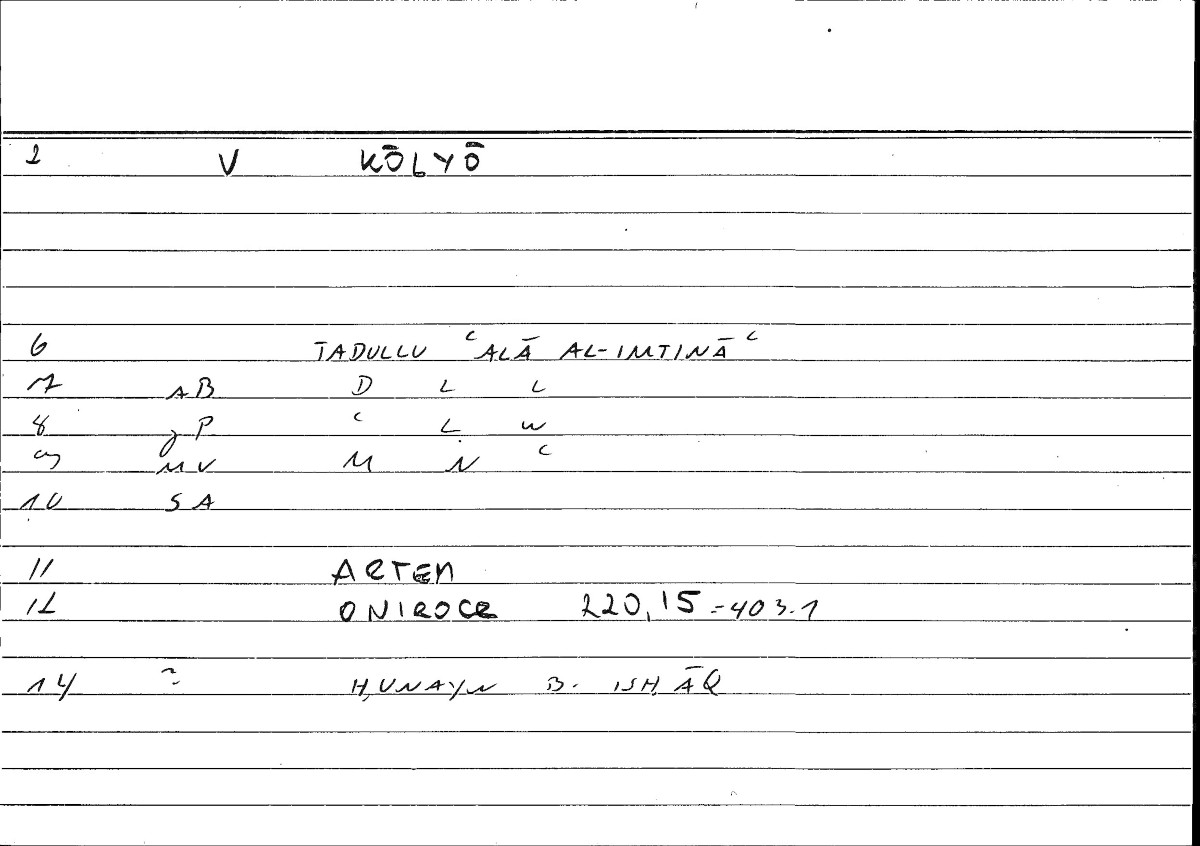 2 V KŌLYŌ
6 TADULLU ʿALĀ AL-IMTINĀʿ
7 AB D L L
8 gP ʿ L W
9 MV M N ʿ
10 SA
11 ARTEM
12 ONIROCR 220,15=403.1
14 ~ ḤUNAYN B. ISḤĀQ